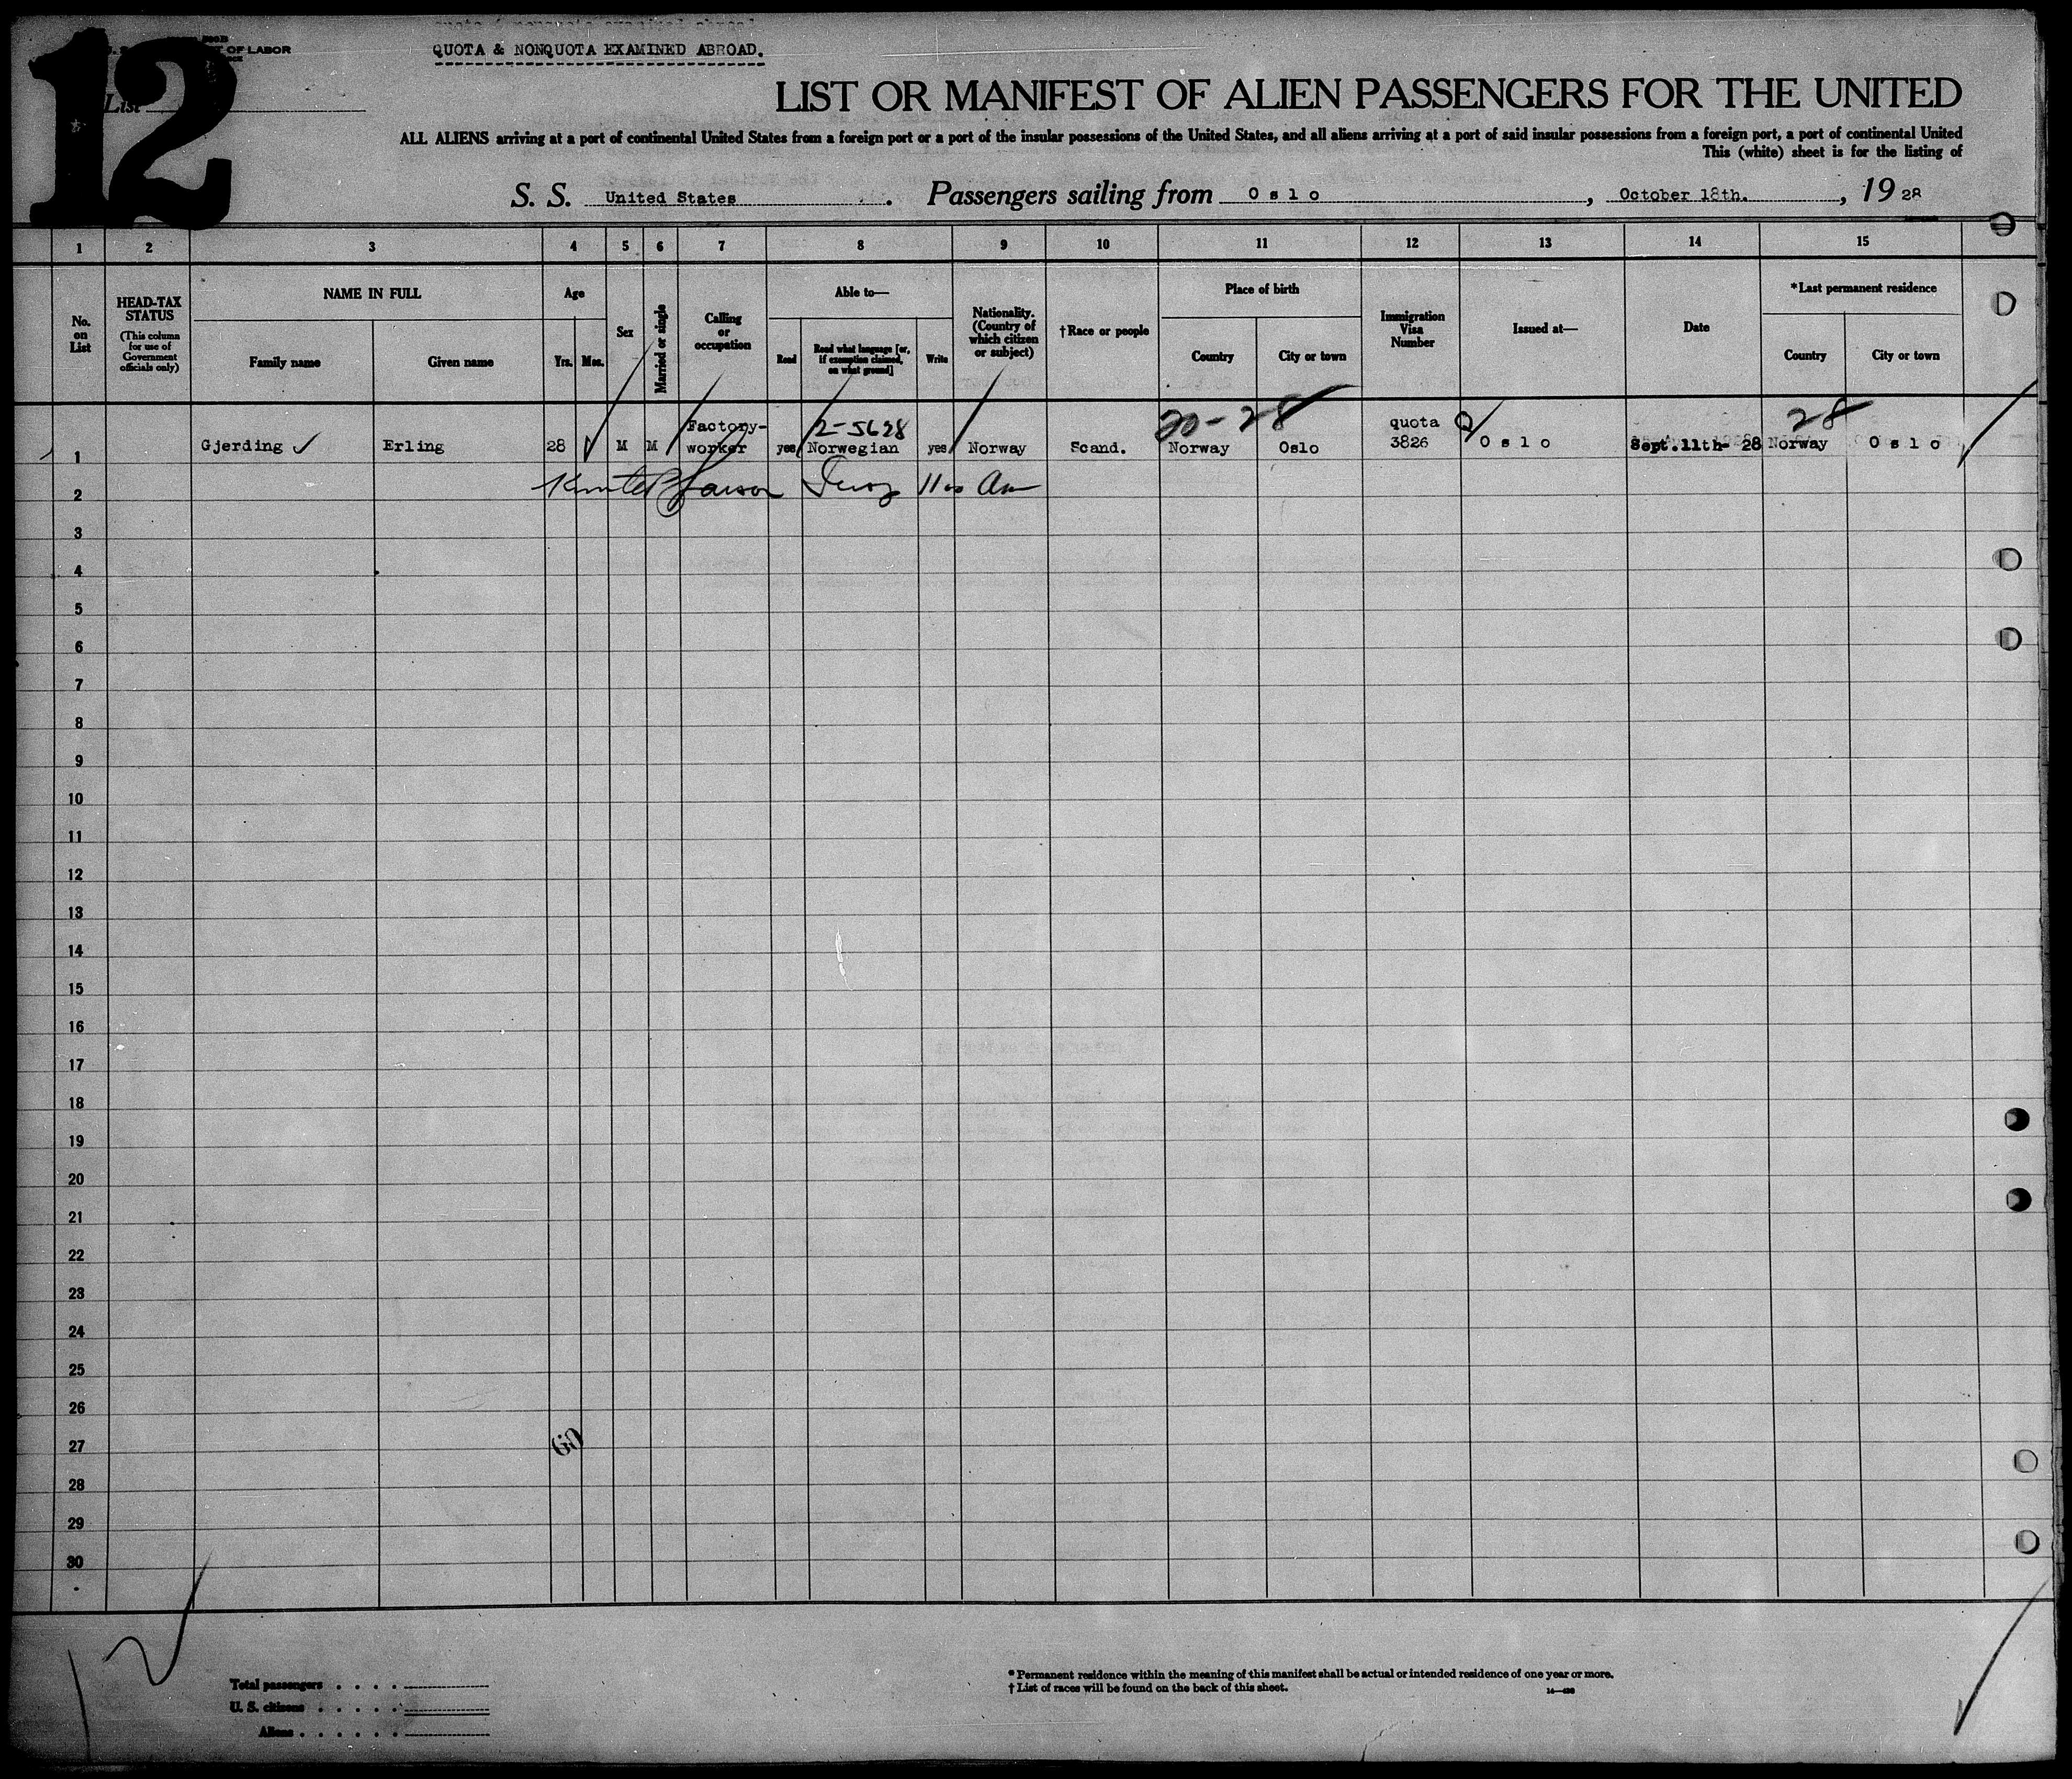 12
OF LABOR
QUOTA & NONQUOTA EXAMINED ABROAD.
List
LIST OR MANIFEST OF ALIEN PASSENGERS FOR THE UNITED
ALL ALIENS arriving at a port of continental United States from a foreign port or a port of the insular possessions of the United States, and all aliens arriving at a port of said insular possessions from a foreign port, a port of continental United
This (white) sheet is for the listing of
S. S. United States. Passengers sailing from Oslo, October 18th., 1928
1 2 3 4 5 6 7 8 9 10 11 12 13 14 15
No. on List
HEAD-TAX STATUS
(This column for use of Government officials only)
NAME IN FULL
Family name
Given name
Age
Yrs. Mos.
Sex
Married or single
Calling or occupation
Able to—
Read
Read what language [or, if exemption claimed, on what ground]
Write
Nationality. (Country of which citizen or subject)
†Race or people
Place of birth
Country
City or town
Immigration Visa Number
Issued at—
Date
*Last permanent residence
Country
City or town
20-28
28
Factory-
2-5628
quota
Q
1 Gjerding Erling 28 M M worker yes Norwegian yes Norway Scand. Norway Oslo 3826 Oslo Sept.11th- 28 Norway Oslo
2
3
4
5
6
7
8
9
10
11
12
13
14
15
16
17
18
19
20
21
22
23
24
25
26
27
60
28
29
30
Total passengers . . . .
U. S. citizens . . . . .
Aliens . . . . . .
* Permanent residence within the meaning of this manifest shall be actual or intended residence of one year or more.
† List of races will be found on the back of this sheet.